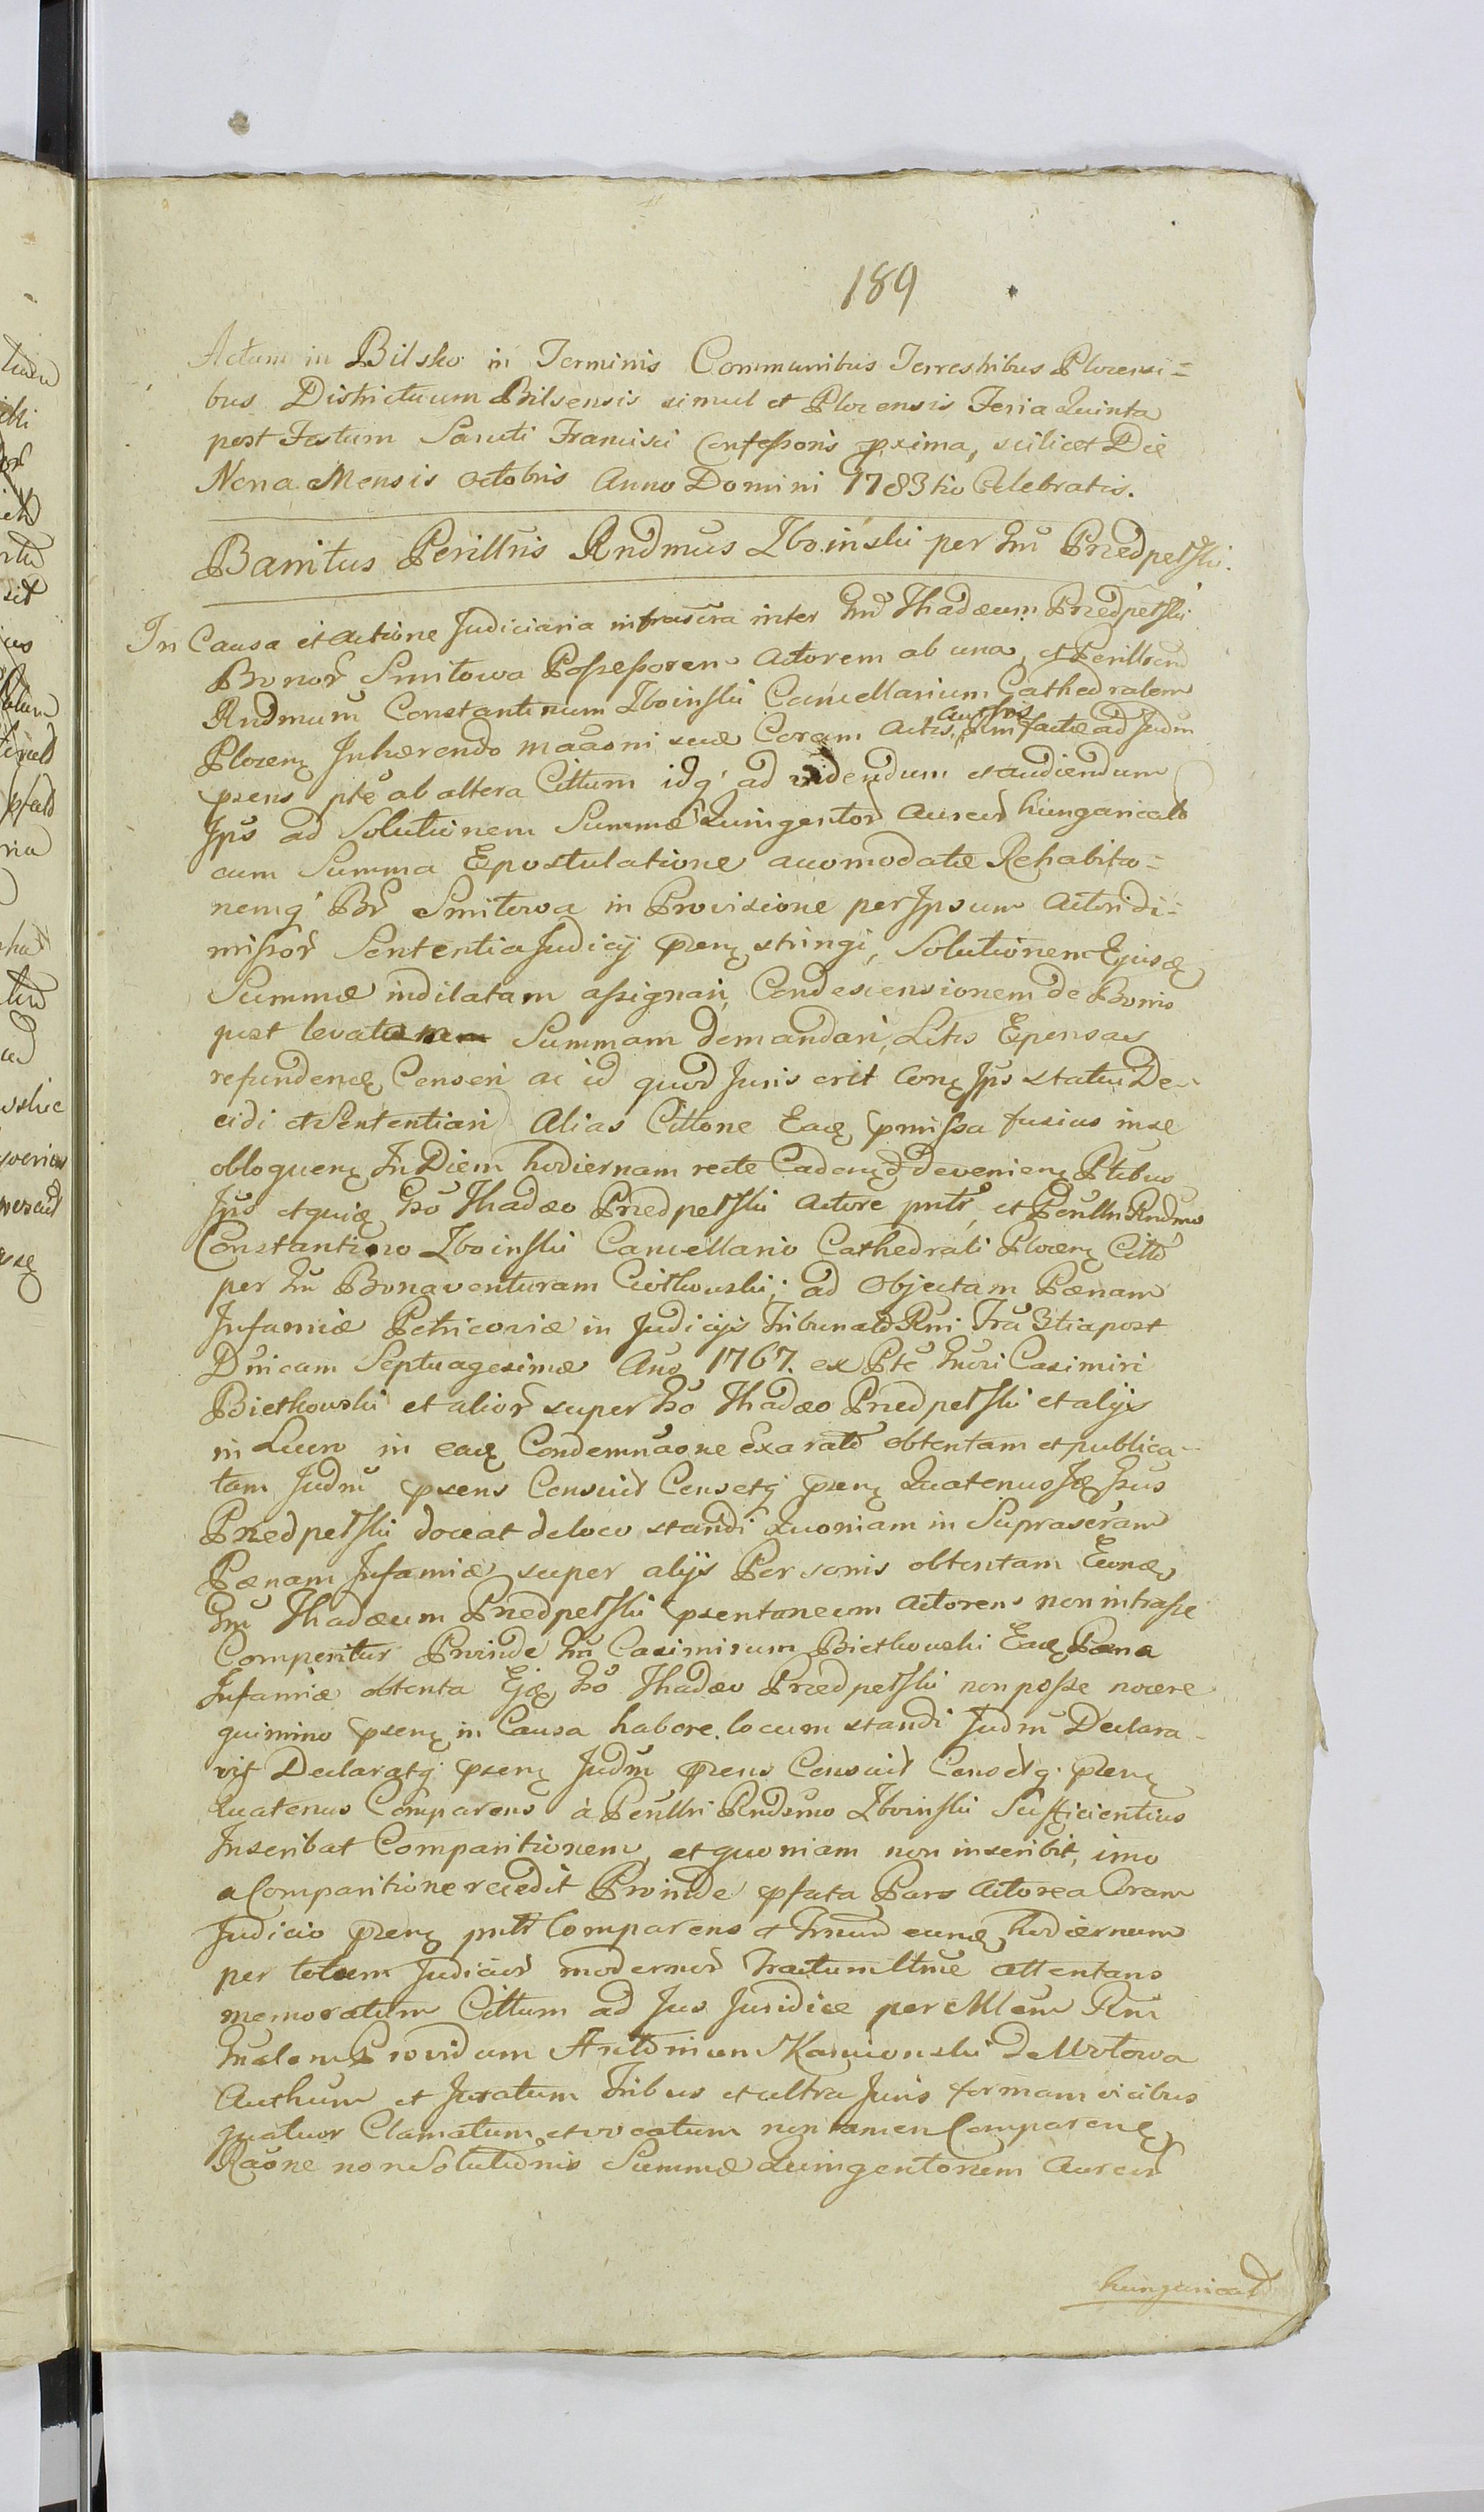 189
Actum in Bilsko in Terminis Communibus Terrestribus Plocensi=
bus Districtuum Bilsensis simul et Plocensis Feria Quinta
post Festum Sancti Francisci Confessoris pxima, scilicet Die
Nona Mensis Octobris Anno Domini 1783tio Celebratis.
Banitus Perillris Rndmus Zboinski per Gm Przedpełski.
In Causa et actione Judiciaria infrascra inter Gnd Thadæum Przedpełski
Bonor Smitowa Possessorem Actorem ab una, et Perillrem
Rndmum Constantinum Zboinski Cancellarium Cathedralem
Plocen Inhærendo maaoni suæ Coram Actis, authcis Rni factæ ad Judm
psens pte ab altera Cittum idq ad videndum et audiendum
Ips ad Solutionem Summæ Quingentor Aureor hungaricalo
cum Summa Expostulatione accomodatæ Rehabitio=
nemq Br Smitowa in Provisione per Ipsum Actori di=
missor Sententia Judicij psen stringi, Solutionem Ejusd
Summæ indilatam assignari, Condescensionem de Bonis
post levatam Summam demandari, Litis Expensas
refunden Censeri ac id quod Juris erit Con Ips statui De-
cidi et Sententiari Alias Cittone Ead pmissa fusius in se
obloquen In Diem hodiernam recte Caden et devenien Ptibus
Ips et quid Gso Thadæo Przedpełski Actore pntr, et Perillri Rndmo
Constantino Zboinski Cancellario Cathedrali Plocen Citto
per Gm Bonaventuram Ciotkowski; ad Objectam Pœnam
Infamiæ Petricoviæ in Judicijs Tribunald Rni Fra 3tia post
Dnicam Septuagesimæ Ano 1767. ex Pte Gnri Casimiri
Bietkowski et alior super Gso Thadæo Przedpełski et alijs
in Lucro in ead Condemnaone Exarato obtentam et publica-
tam Judm psens Censuit Censetq psen Quatenus Id Gsus
Przedpełski doceat de loco standi Quoniam in Suprascram
Pœnam Infamiæ super alijs Personis obtentam Eund
Gm Thadæum Przedpełski psentaneum Actorem non intrasse
Comperitur Proinde Gm Casimirum Bietkowski Ead Pœna
Infamiæ obtenta Ejd Gso Thadæo Przedpełski non posse nocere
quimino psen in Causa habere locum standi Judm Declara-
vit Declaratq psen Judm psens Censuit Censetq psen
Quatenus Comparens à Perillri Rndsmo Zboinski Sufficientius
Inscribat Comparitionem, et quoniam non inscribit, imo
a Comparitione recedit Proinde pfata Pars Actorea Coram
Judicio psen pntr Comparens et Tmnum eund hodiernum
per totum Judicior modernor Tractum ltme attentans
memoratum Cittum ad Jus Juridice per Mlem Rni
Gnalem Providum Antonium Kamionski de Mrotowa
Authum et Juratum Tribus et ultra Juris formam vicibus
quatuor Clamatum et vocatum non tamen Comparen
Raone non Solutionis Summæ Quingentorum Aureor
hungaricalo